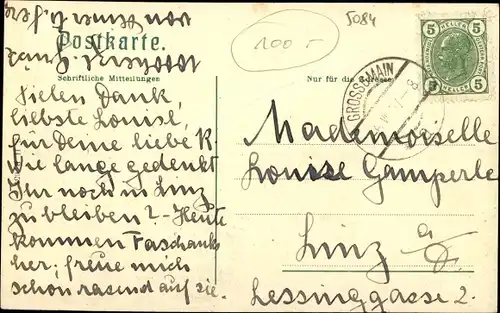 5084
100
Postkarte.
Schriftliche Mitteilungen
Nur für die Adresse
5 HELLER 5
GROSSGMAIN
Vielen Dank,
liebste Louise,
für Deine liebe K.
Wie lange gedenkt
Ihr noch in Linz
zu bleiben? - Heute
kommen
her; freue mich
schon rasend auf sie.
Mademoiselle
Louise Gamperle
Linz a/D.
Lessinggasse 2.